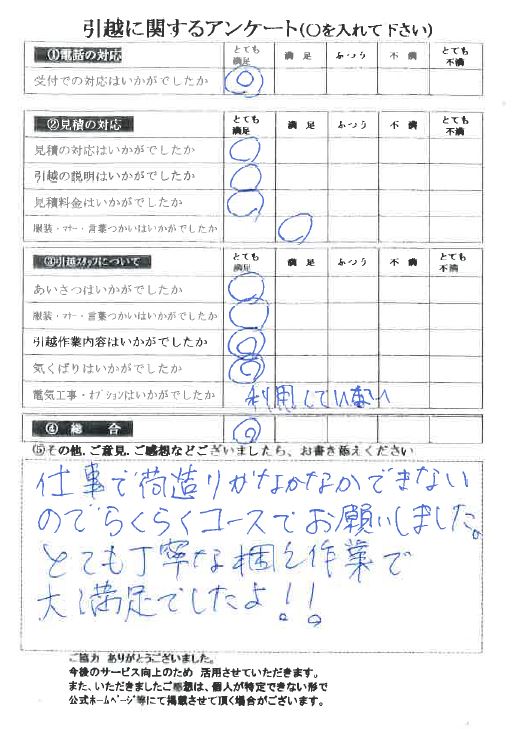 引越に関するアンケート(○を入れて下さい)
①電話の対応 とても満足 満足 ふつう 不満 とても不満
受付での対応はいかがでしたか ◎
②見積の対応 とても満足 満足 ふつう 不満 とても不満
見積の対応はいかがでしたか ○
引越の説明はいかがでしたか ○
見積料金はいかがでしたか ○
服装・マナー・言葉つかいはいかがでしたか ○
③引越スタッフについて とても満足 満足 ふつう 不満 とても不満
あいさつはいかがでしたか ○
服装・マナー・言葉つかいはいかがでしたか ○
引越作業内容はいかがでしたか ◎
気くばりはいかがでしたか ◎
電気工事・オプションはいかがでしたか 利用していない
④ 総 合 ◎
⑤その他、ご意見、ご感想などございましたら、お書き添えください
仕事で荷造りがなかなかできない
のでらくらくコースでお願いしました。
とても丁寧な梱包作業で
大満足でしたよ!!
ご協力 ありがとうございました。
今後のサービス向上のため 活用させていただきます。
また、いただきましたご感想は、個人が特定できない形で
公式ホームページ等にて掲載させて頂く場合がございます。